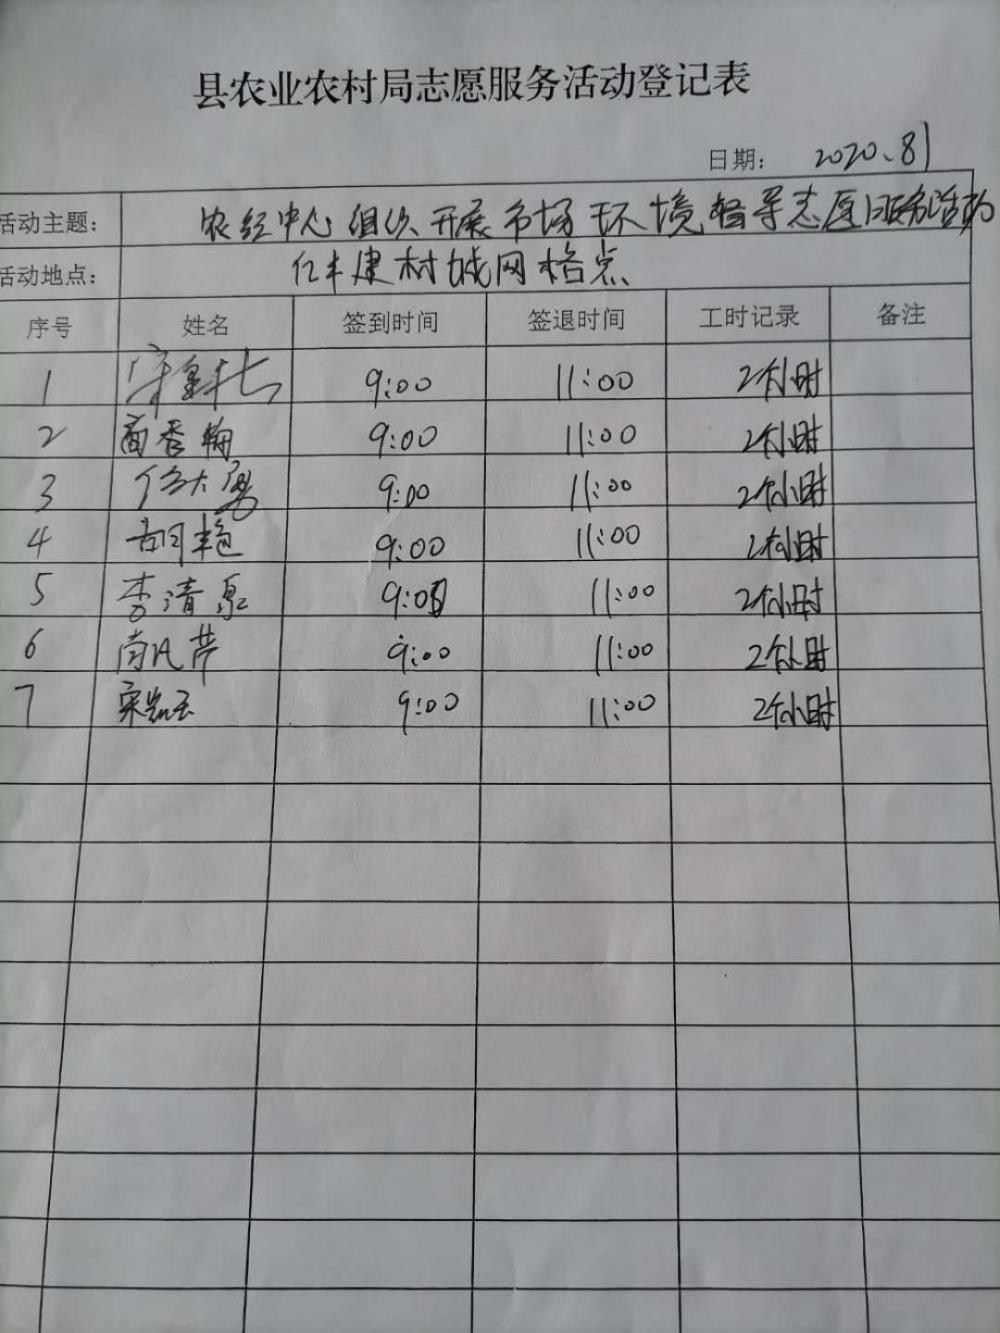 县农业农村局志愿服务活动登记表
日期： 2020.8
活动主题： 农经中心组织开展市场环境督导志愿服务活动
活动地点： 亿丰建材城网格点
序号 姓名 签到时间 签退时间 工时记录 备注
1 9:00 11:00 2个小时
2 9:00 11:00 2个小时
3 9:00 11:00 2个小时
4 胡艳 9:00 11:00 2个小时
5 李清泉 9:00 11:00 2个小时
6 9:00 11:00 2个小时
7 9:00 11:00 2个小时